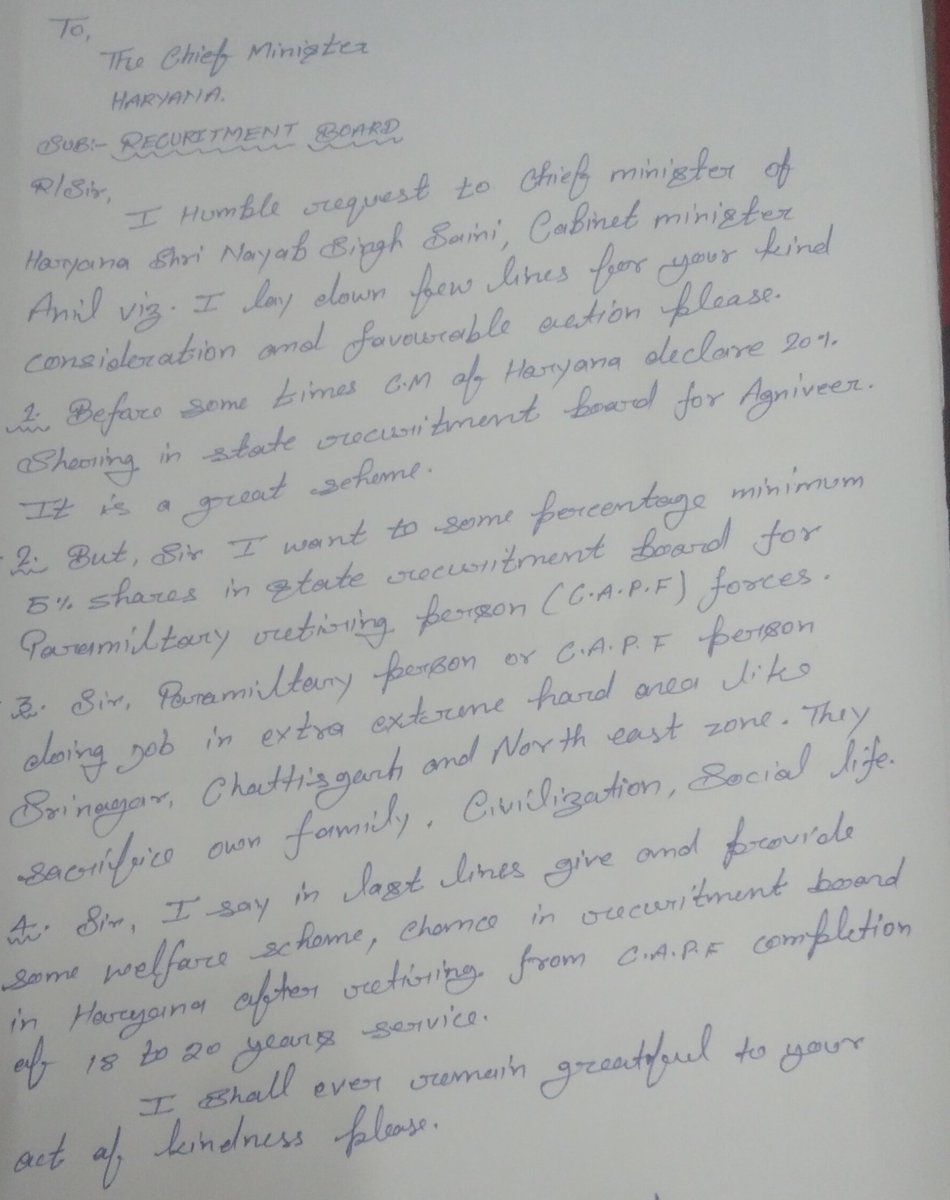 To,
The Chief Minister
HARYANA.
SUB:- RECURITMENT BOARD
R/Sir,
I Humble request to Chief minister of
Haryana Shri Nayab Singh Saini, Cabinet minister
Anil viz. I lay down few lines for your kind
consideration and favourable action please.
1. Before some times C.M of Haryana declare 20%
Shering in state recuritment board for Agniveer.
It is a great scheme.
2. But, Sir I want to some percentage minimum
5% shares in state recuritment board for
Paramiltary retiring person (C.A.P.F) forces.
3. Sir, Paramiltary person or C.A.P.F person
doing job in extra extreme hard area like
Srinagar, Chattisgarh and North east zone. They
sacrifice own family, Civilization, Social life.
4. Sir, I say in last lines give and provide
some welfare scheme, chance in recuritment board
in Haryana after retiring from C.A.P.F completion
of 18 to 20 years service.
I shall ever remain greatful to your
act of kindness please.